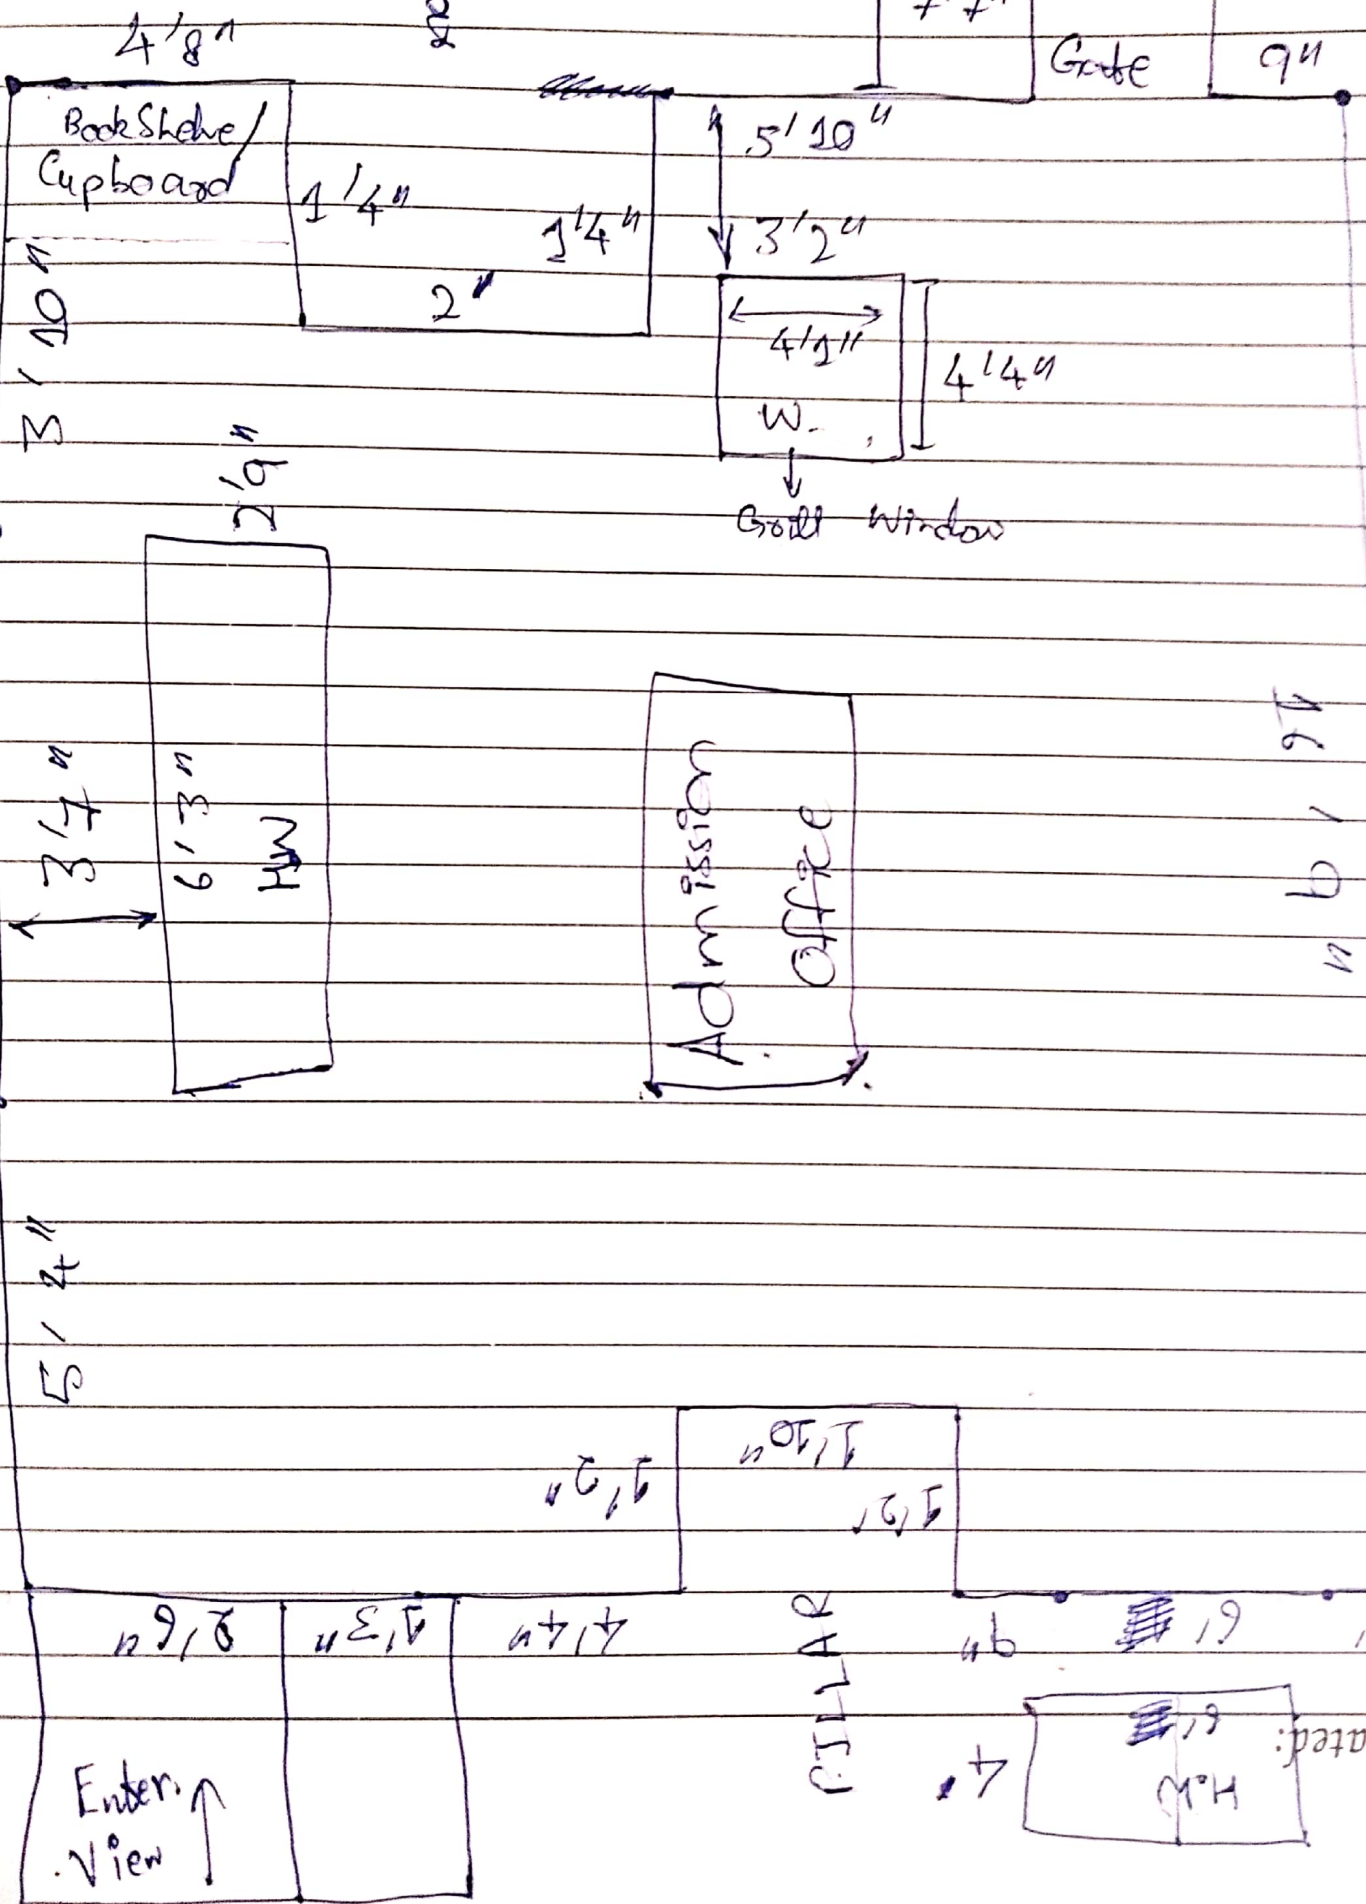 4'8"
Gate
9"
BookShelve/
Cupboard
1'4"
1'4"
2'
5'10"
3'2"
4'1"
W.
4'4"
Grill Window
3'10"
2'9"
3'7"
6'3"
HW
Admission
Office
16'9"
5'4"
1'2"
1'10"
1'2'
2'6"
1'3"
4'4"
PILLAR
9"
6'
Enter.
View
4'
6'
H.W
ated: